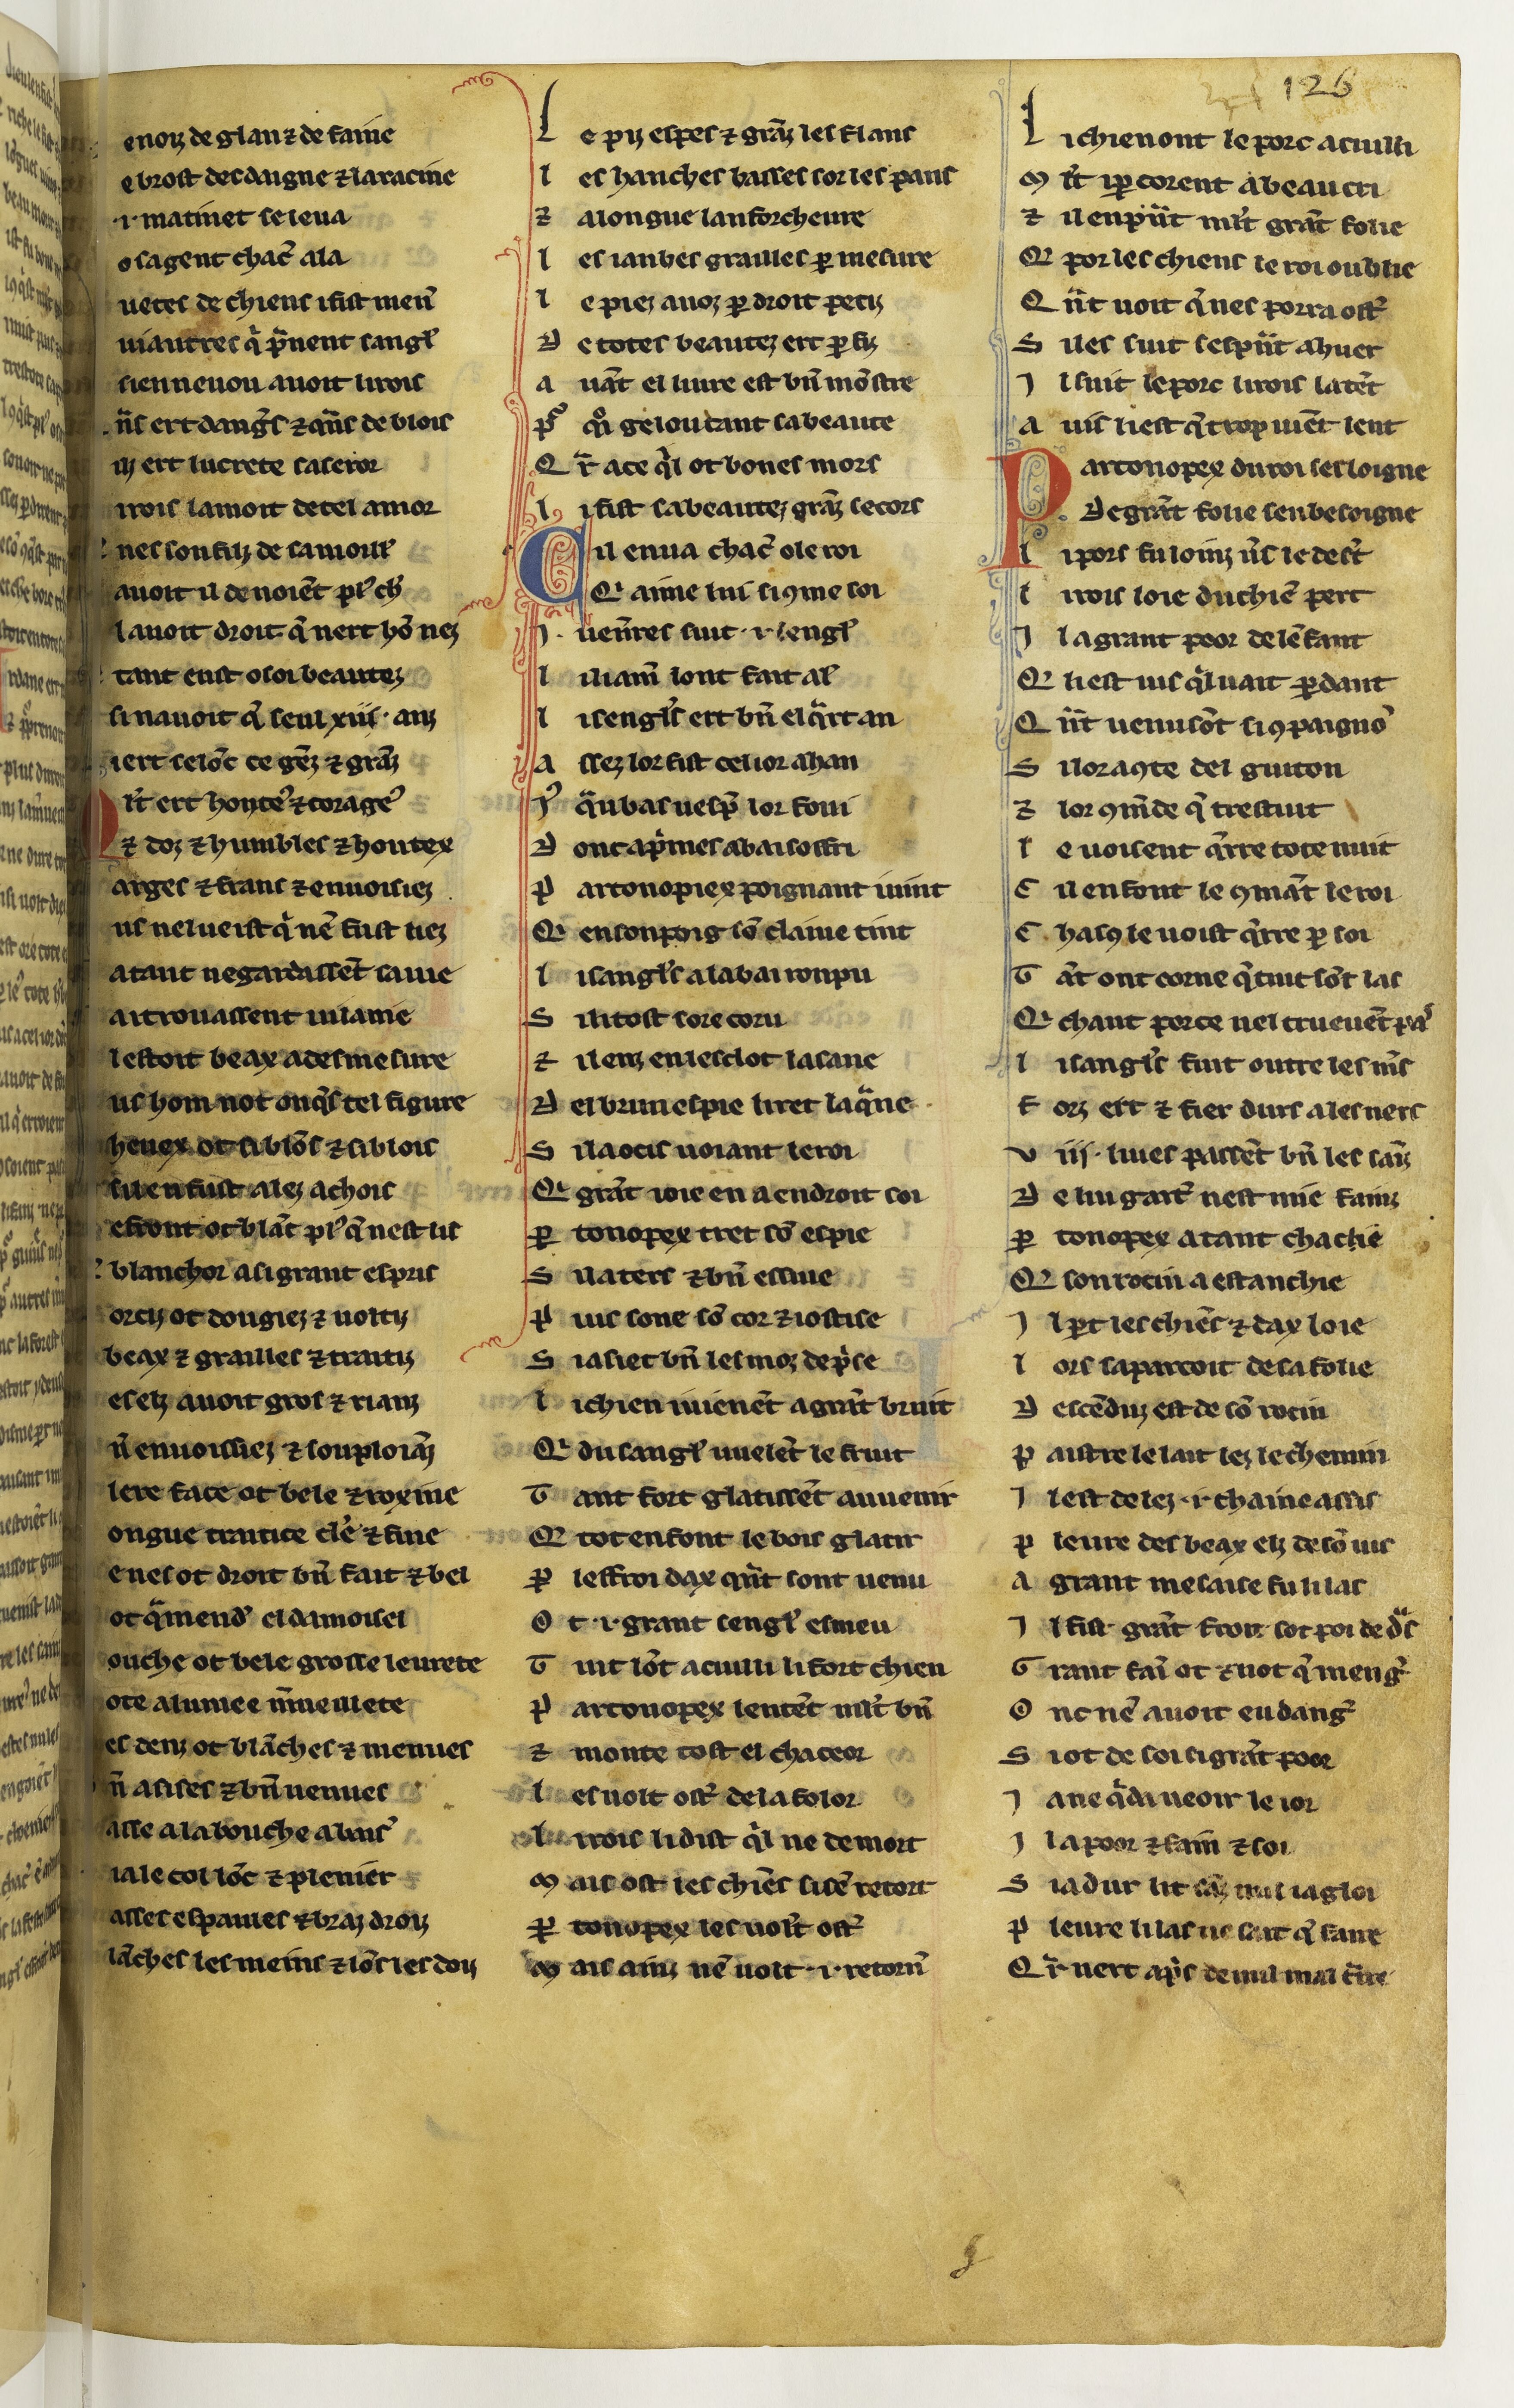 126
enoiz de glan ⁊ de faine
e brost desdaigne ⁊ la racine
·i· matinet se leua
o sa gent chac̄ ala
uetes de chiens i fist men̄
uiautres q̄ p̄nent sangl̄
sien neuou auoit li rois
n̄s ert dang̃s ⁊ qn̄s de blois
ilz ert lucrete sa seror
i rois lamoit de tel amor
nes son filz de sa moill̄
auoit il de noiēt pl' ch̄
l auoit droit q̄ nert hō nez
tant eust o soi beautez
si nauoit q̄ seul xiii· anz
iert selōc ce gēz ⁊ grāz
lt̄ ert honpte' ⁊ corage'
⁊ doz ⁊ humbles ⁊ hontex
arges ⁊ frans ⁊ enuoisiez
us nel ueist q̄ nē fust liez
a tant negardassēt sa uie
a i trouassent uilanie
l estoit beax a desmesure
us hom not onq̄s tel figure
heuex ot si blōs ⁊ si blois
sil en fust alez a chois
e front ot blāc pl' q̄ nest lis
blanchor a si grant espris
orciz ot dougiez ⁊ uoltiz
beax ⁊ grailles ⁊ traitiz
es elz auoit gros ⁊ rianz
n̄ enuoissiez ⁊ souploiāz
lere face ot bele ⁊ roxine
ongue traitice cle' ⁊ fine
e nes ot droit bn̄ fait ⁊ bel
ot q̄mend' el damoisel
ouche ot bele grosse leurete
ote alumee n̄meillete
es denz ot blāches ⁊ menues
n̄ assises ⁊ bn̄ uenues
asse a la bouche a baiſ'
ia le col lōc ⁊ plenier
asses espaules ⁊ braz droiz
lāches les meins ⁊ lōs les doiz
L e piz espes ⁊ grāz les flans
l es hanches basses sor les pans
⁊ a longue lanforcheure
l es ianbes grailles p̱ mesure
l e piez auoz p̱ droit petiz
D e totes beautez ert p̱ fiz
a uāt el liure est bn̄ mōstre
p' q̊i ge lou tant sa beaute
Q r̄ a ce q̄l ot bones mors
l i fist sa beautez grāz secors
C il en ua chac̄ o le roi
Q aime lui si 9me soi
J· uen̄res suit ·i· sengl̄
l i liam̄ lont fait al̄
l i sengl̄s ert bn̄ el q̄rt an
A ssez lor fist cel ior ahan
J' q̄ubas uesp̄ lor foui
D onc ap̄mes abai soffri
P artonopiex poignant i uint
Q en son poig sō claiue tint
l i sangl̄s a labai ronpu
S i li tost sore coru
⁊ il enz en lesclot la sanc
D el brun espie li ret la q̄ne
S i la ocis uoiant le roi
Q grāt ioie en a endroit soi
p̱ tonopex tret sō espie
S i la ters ⁊ bn̄ essuie
P uis sone sō cor ⁊ iostise
S i asiet bn̄ les moz de p̄se
l i chien i uienēt a grāt bruit
Q du sangl̄ uuelēt le fruit
T ant fort glatissēt au uenir
Q tot en font le bois glatir
P leffroi dax qn̄t sont uenu
O t ·i· grant sengl̄ esmeu
T uit lōt acuilli li fort chien
P artonopex lentēt ml̄t bn̄
⁊ monte tost el chaceor
l es uolt ost̄ de la folor
l i rois li dist q̄l ne demort
M ais ost les chiēs si sē retort
p̱ tonopex les uolt ost̄
M ais ainz nē uolt ·i· retorn̄
L i chien ont le porc acuilli
M lt̄ i p̱ corent a beau cri
⁊ il enp̄ut ml̄t grāt folie
Q por les chiens le roi oublie
Q n̄t uoit q̄ nes porra ost̄
S i les suit sesp̄ut a huer
J l suit le porc li rois latēt
A uis li est q̄ trop uiēt lent
P artonopex du roi sesloigne
D e grāt folie senbesoigne
l i pors fu loinz u̱s le des't
l i rois loie du chiē pert
J l a grant peor de lēfant
Q li est uis q̄l uait p̱dant
Q n̄t uenu sōt si 9paignō
S i lor a 9te del guiton
⁊ lor 9m̄de q̄ trestuit
l e uoisent q̄rre tote nuit
C il en font le 9māt le roi
C hasc9 le uoist q̄rre p̱ soi
T āt ont corne q̄ tuit sōt las
Q chant por ce nel trueuēt pas
l i sangl̄s fuit outre les ml̄s
F orz est ⁊ fier durs a les ners
V iii· liues passēt bn̄ les sāz
D e lui gart̄ nest mie fainz
p̱ tonopex a tant chacie
Q son rocin a estanchie
J l p̱t les chiēs ⁊ dax loie
l ors saparcoit de sa folie
D escēduz est de sō rocin
P aistre le lait lez le chemin
J l est delez ·i· chaine assis
P leure des beax elz de sō uis
A grant mesaise fu li las
J l fist grāt froit sot poi de dras
G rant fai ot ⁊ not q̄ meng̃
O nc nē auoit eu dang̃
S i ot de soi si grāt poor
J a ne q̄da ueoir le ior
J l a poor ⁊ faim ⁊ soi
S ia dur lit sāz nul iagloi
P leure li las ne sait q̄ fane
Q r̄ nert ap̄s de nul mal t̄re